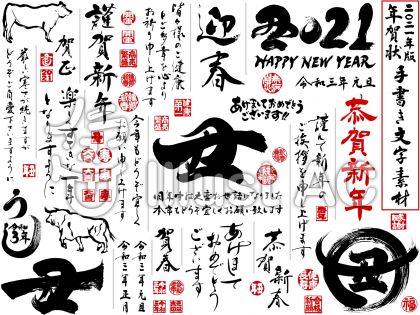 二〇二一年版
年賀状 手書き文字素材
丑2021
HAPPY NEW YEAR
令和三年元旦
迎春
皆々様のご健康と
ご多幸を心より
お祈り申し上げます
謹賀新年
賀正
楽しい一年に
なりますように
厳しい寒さが続きますが
どうぞご自愛下さいますように
あけましておめでとう
ございます!!
恭賀新年
謹んで新年の
ご挨拶を申し上げます
丑
旧年中は大変お世話になりました
本年もどうぞ宜しくお願い致します
今年もどうぞ宜しく
お願い申し上げます
うし
丑
令和三年元旦
令和三年正月
賀春
あけまして
おめでとう
ございます
恭賀新春
丑